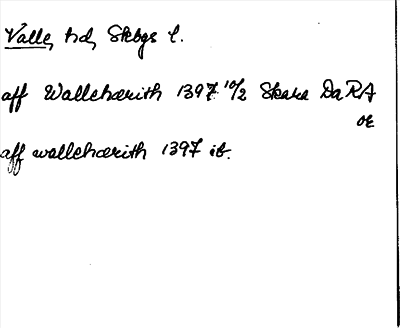 Valle, hd, Skbgs l.
aff Wallehærith 1397 10/2 Skara Da RA
or
aff wallehærith 1397 ib.